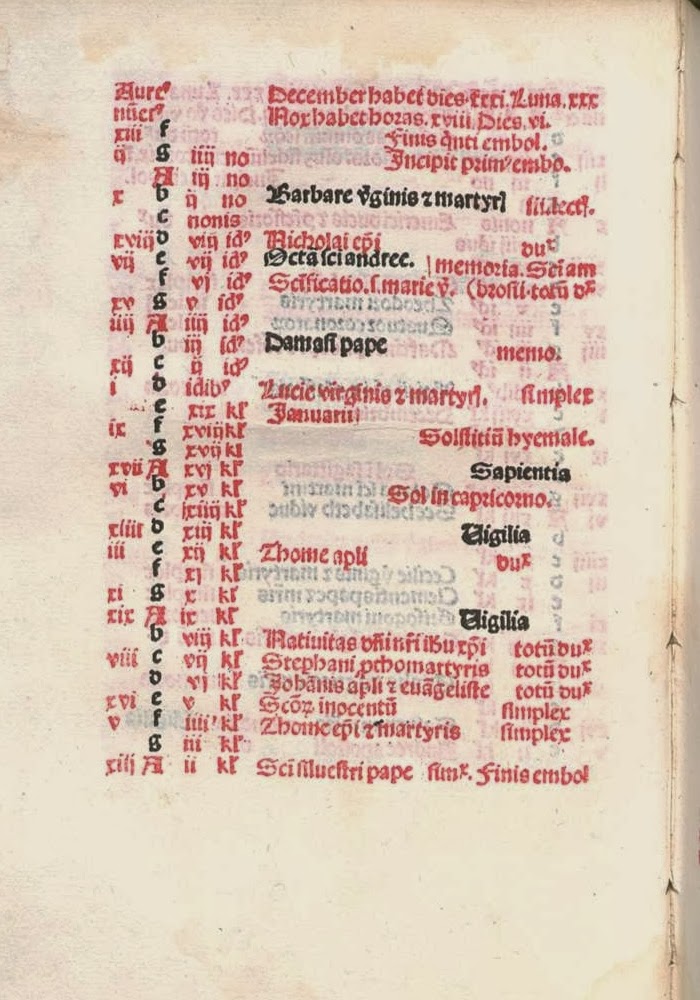 Aureꝰ December habet dies. xxxi. Luna. xxx
nūerꝰ Nox habet horas. xviii. Dies. vi.
xiii f Finis q̄nti embol.
ij g iiij no Incipit primꝰ embo.
A iij no
x b ij no Barbare v̄ginis ⁊ martyrꝭ iii. lect.
c nonis
xviij d viij idꝰ Nicholai ep̄i duꝝ
vij e vij idꝰ Octā sci andree. memoria. Sci am
f vj idꝰ Scificatio. s. marie v̄. (brosii. totū dꝝ
xv g v idꝰ
iiij A iiij idꝰ
b iij idꝰ Damasi pape memo.
xij c ij idꝰ
i d idibꝰ Lucie virginis ⁊ martyrꝭ. simplex
e xix kl̄ Januarij
ix f xviij kl̄ Solstitiū hyemale.
g xvij kl
xvij A xvj kl̄ Sapientia
vi b xv kl̄ Sol in capricorno.
c xiiij kl̄
xiiii d xiij kl̄ Uigilia
iii e xij kl̄ Thome apl̄i duꝝ
f xj kl̄
xi g x kl̄
xix A ix kl̄ Uigilia
b viij kl̄ Nativitas dn̄i nr̄i ihu xp̄i totū duꝝ
viii c vij kl̄ Stephani. ꝓthomartyris totū duꝝ
d vj kl̄ Johānis apl̄i ⁊ euāgeliste totū duꝝ
xvi e v kl̄ Scōꝝ inocentū simplex
v f iiij kl̄ Thome ep̄i ⁊ martyris simplex
g iii kl̄
xiij A ii kl̄ Sci siluestri pape simꝝ. Finis embol